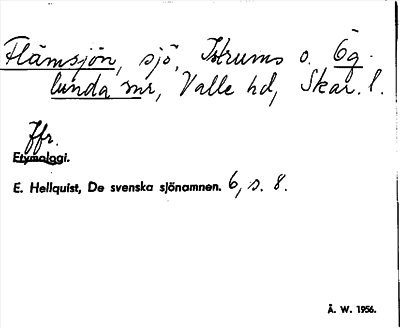 Flämsjön, sjö, Istrums o. Ög-
lunda snr, Valle hd, Skar. l.
Jfr.
Etymologi.
E. Hellquist, De svenska sjönamnen. 6, s. 8.
Å. W. 1956.